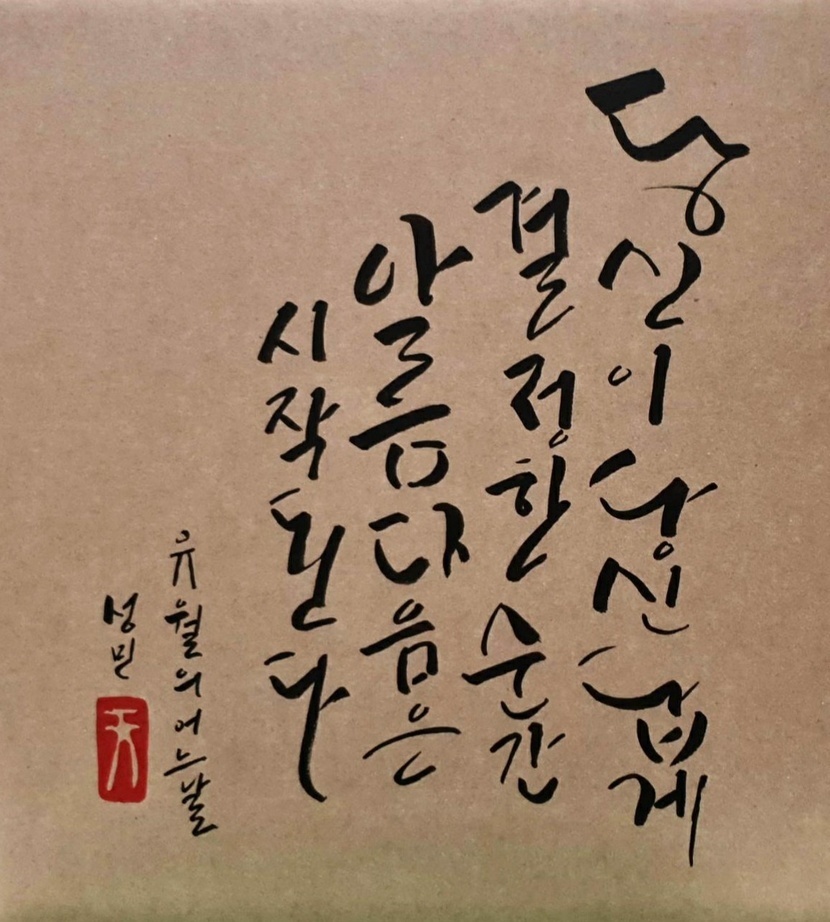 당신이 당신답게
결정한 순간
아름다음은
시작된다
유월의 어느날
성민